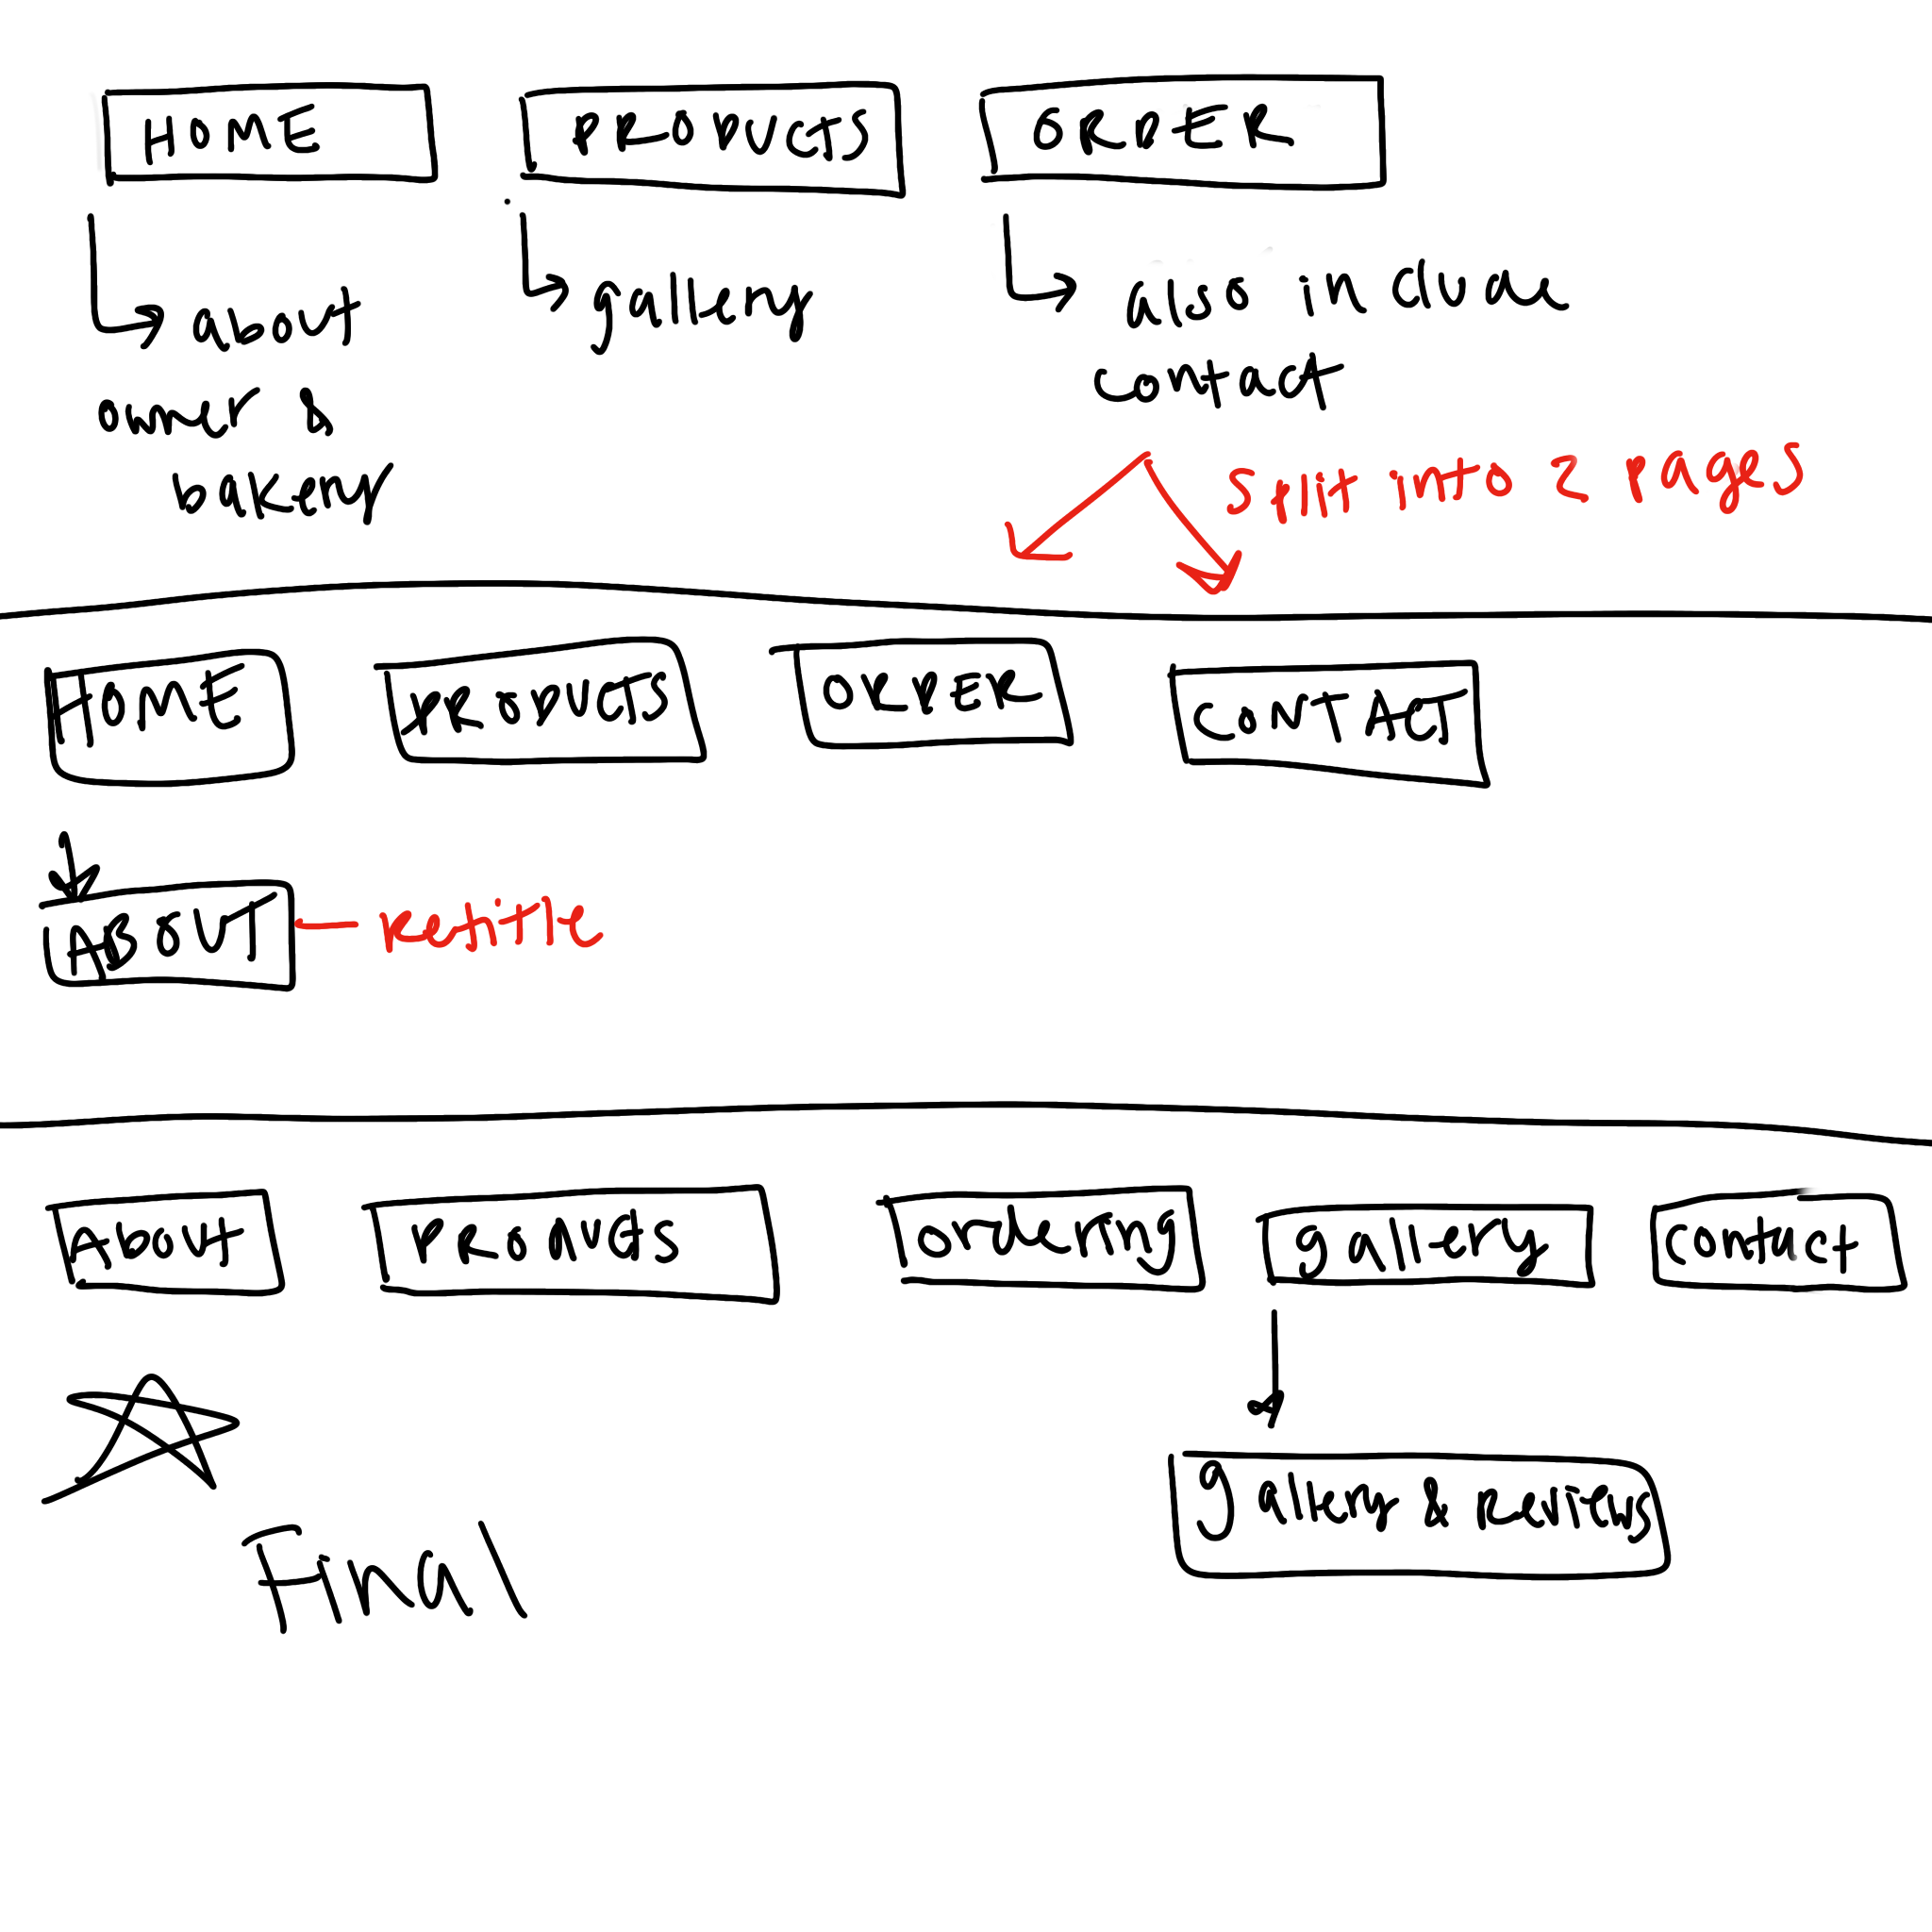 HOME PRODUCTS ORDER
about gallery also include
owner & contact
bakery
split into 2 pages
HOME PRODUCTS ORDER CONTACT
ABOUT Retitle
About PRODUCTS ordering gallery contact
Gallery & Reviews
Final